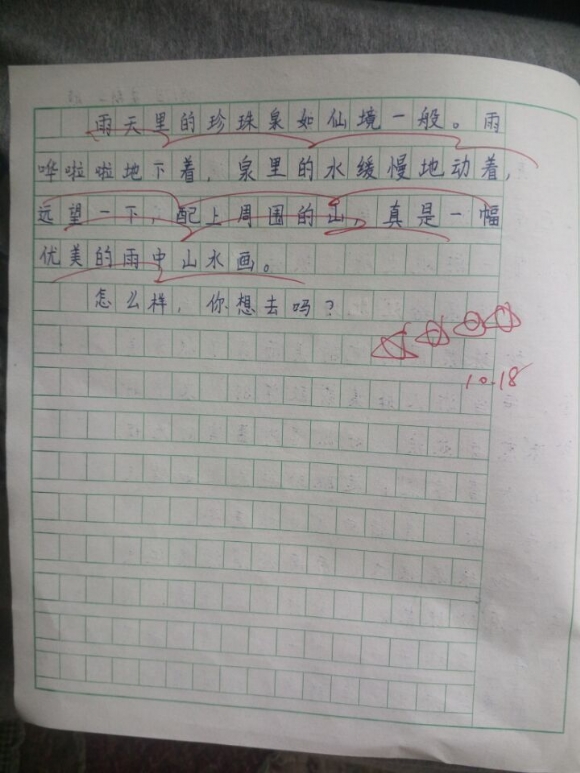 雨天里的珍珠泉如仙境一般。雨
哗啦啦地下着，泉里的水缓慢地动着，
远望一下，配上周围的山，真是一幅
优美的雨中山水画。
怎么样，你想去吗？
10.18